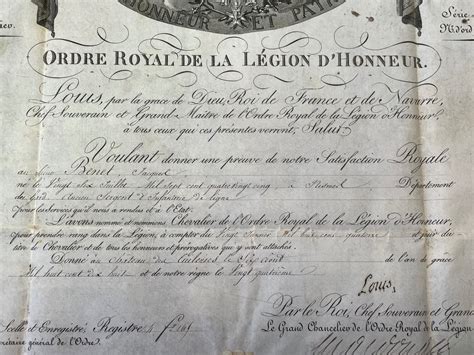 HONNEUR ET PATRIE
Série
N.º d'ord
ORDRE ROYAL DE LA LÉGION D'HONNEUR.
Louis, par la grace de Dieu, Roi de France et de Navarre,
Chef Souverain et Grand Maître de l'Ordre Royal de la Légion d'Honneur,
à tous ceux qui ces présentes verront, Salut.
Voulant donner une preuve de notre Satisfaction Royale
au Sieur Benet Jacques
né le Vingt Juillet Mil Sept cent quatre Vingt cinq à Département
du Nord Sergent d'Infanterie de ligne
pour les Services qu'il nous a rendus et à l'Etat:
L'avons nommé et nommons Chevalier de l'Ordre Royal de la Légion d'Honneur,
pour prendre rang dans la Légion, à compter du Vingt Mil huit cent quatorze et jouir du
titre de Chevalier et de tous les honneurs et prérogatives qui y sont attachés.
Donné au Château des Tuileries le Sept août l'an de grace
Mil huit cent dix huit et de notre règne le Vingt quatrième
Louis
Par le Roi, Chef Souverain et Grand
Scellé et Enregistré, Registre 4 fº
Le Grand Chancelier de l'Ordre Royal de la Légion
crétaire général de l'Ordre.)